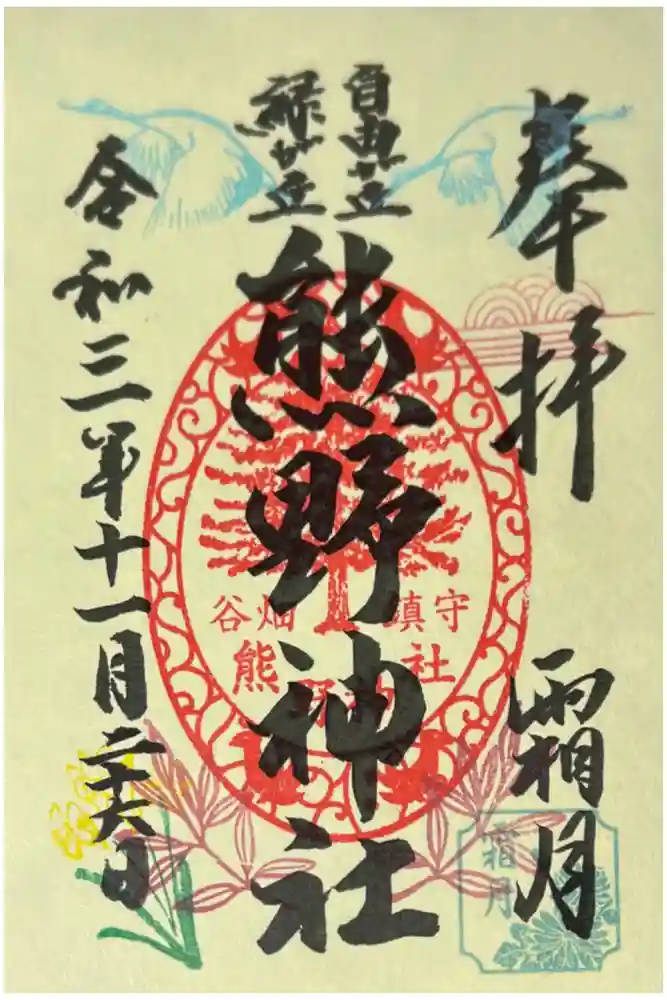 奉拝
霜月
霜月
自由が丘
緑が丘
熊野神社
谷畑 鎮守
熊野神社
令和三年十一月二十六日